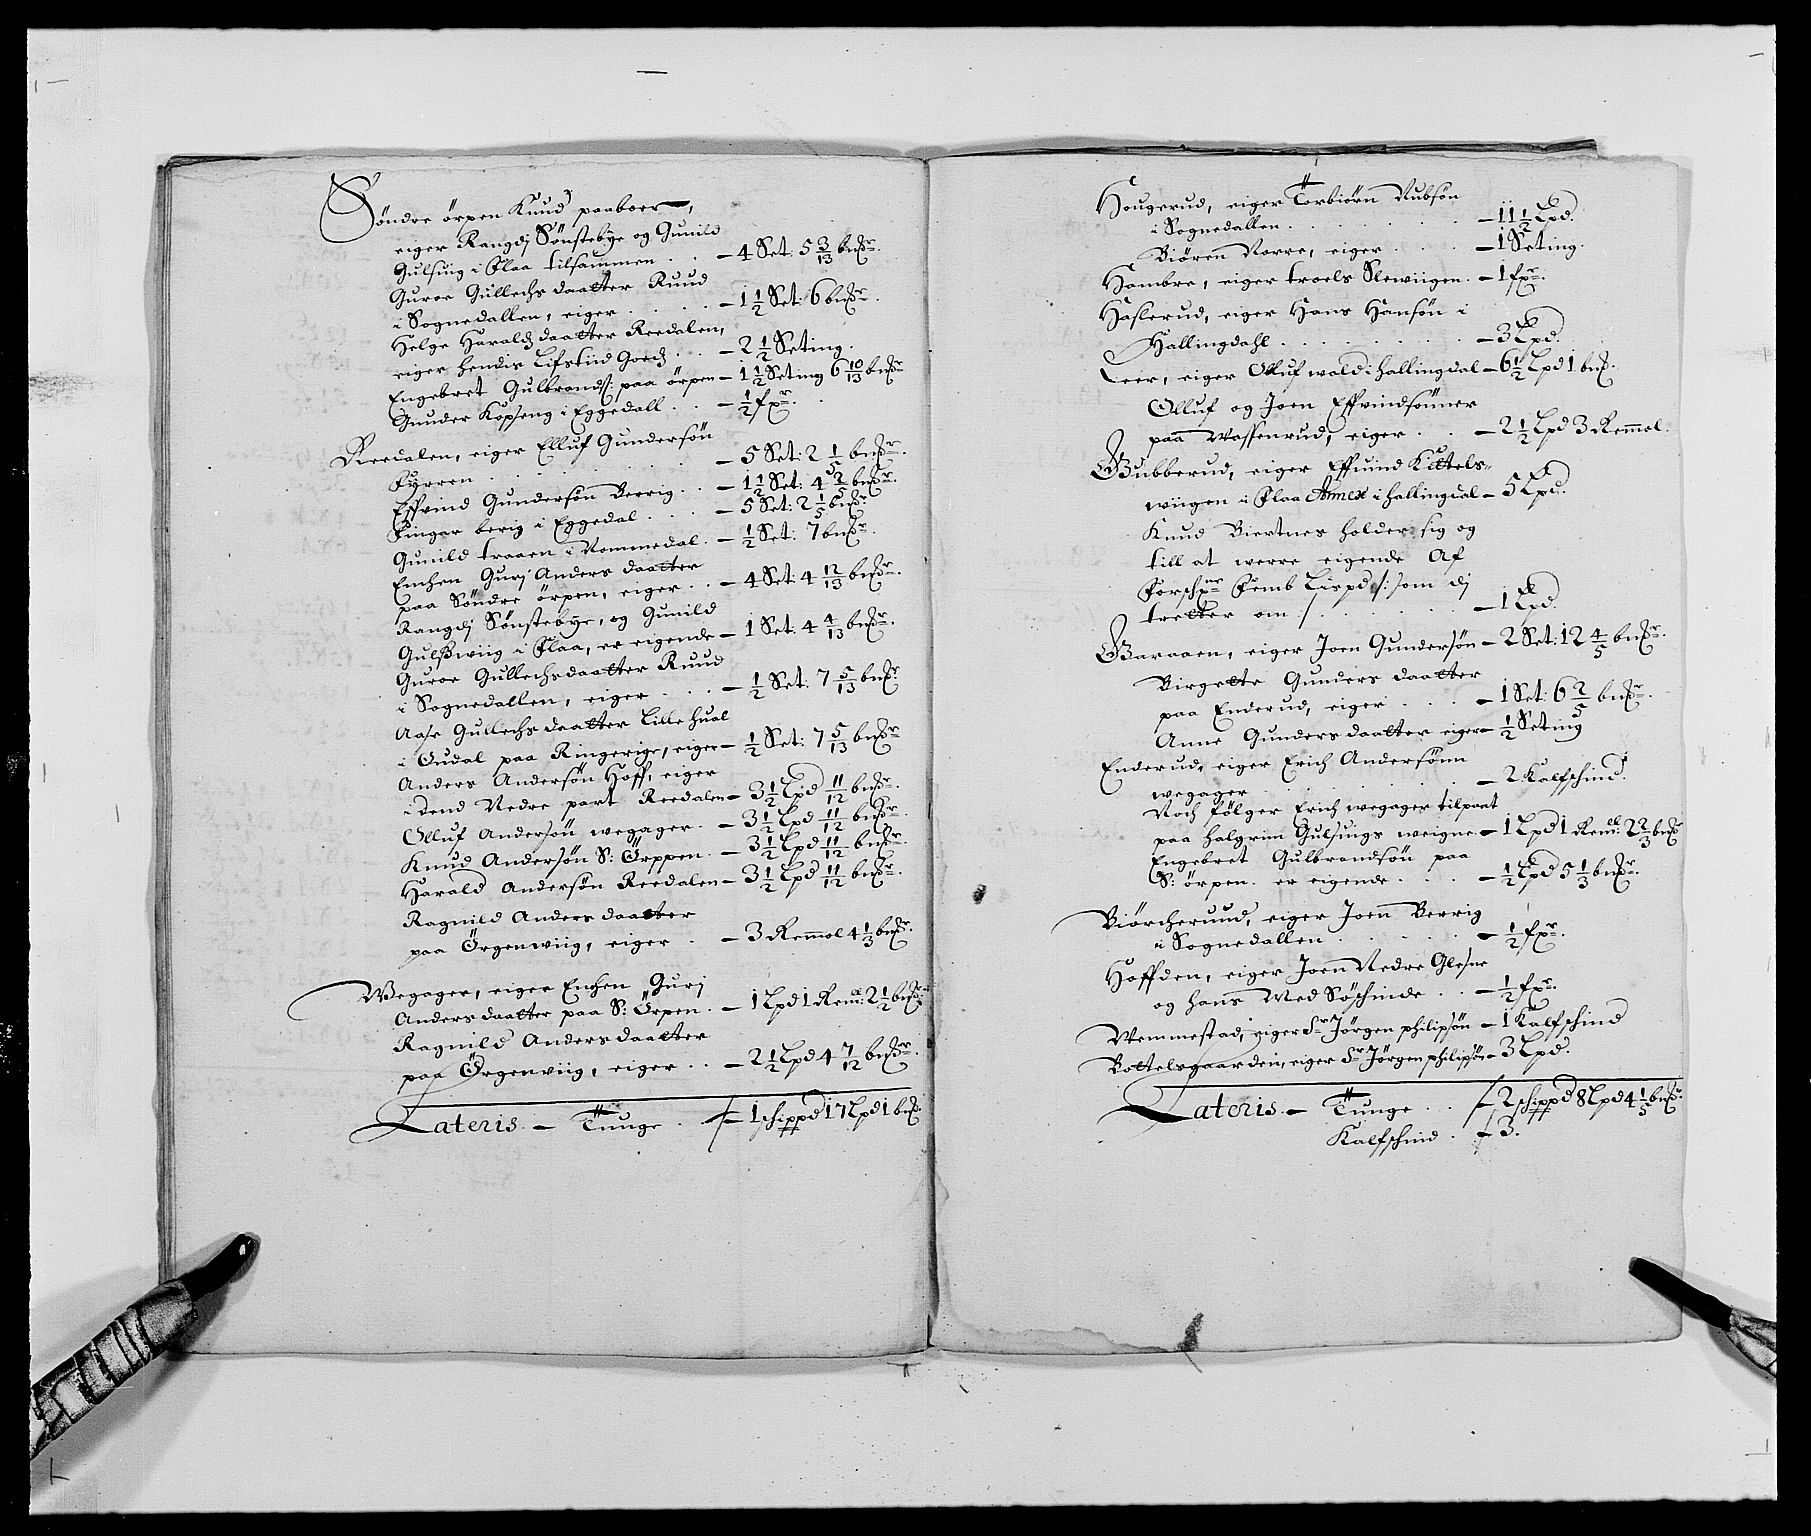 Søndre ørpen Knud paaboer,
eiger Rangdj Sønstebye og Gunild
Gulsuig i Flaa tilsammen . . – 4 Set: 5 3/13 bußr.
Guroe Gullechsdaatter Ruud
i Sognedallen, eiger . . . – 1 1/2 Set: 6 bußr.
Helge Haraldsdaatter Reedalen,
eiger hendis Lifstiid Goeds . . – 2 1/2 Seting.
Engebret Gulbrands: paa ørpen – 1 1/2 Seting 6 10/13 bußr
Gunder Kopseng i Eggedall . . – 1/2 fxr.
Reedalen, eiger Elluf Gundersøn
Fyrren . . . – 5 Set: 2 1/5 bußr.
Effvind Gundersøn Beerig . . – 1 1/2 Set: 4 2/5 bußr.
Fingar berig i Eggedal . . . – 5 Set: 2 1/5 bußr
Gunild traaen i Rommedal . – 1/2 Set: 7 bußr.
Enchen Gurj Anders daatter
paa Søndre ørpen, eiger . . – 4 Set: 4 12/13 bußr.
Rangdj Sønstebye, og Gunild
Gulßwiig i Flaa, er eigende – 1 Set: 4 4/13 bußr.
Guroe Gullechsdaatter Ruud
i Sognedallen, eiger . . . – 1/2 Set: 7 5/13 bußr
Aase Gullechsdaatter Lille hual
i Oudal paa Ringerige, eiger – 1/2 Set: 7 5/13 bußr
Anders Andersøn Hoff, eiger
i dend Nedre part Reedalen – 3 1/2 Lpd 11/12 bußr.
Olluf Andersøn wegager . – 3 1/2 Lpd 11/12 bußr.
Knud Andersøn S: Ørppen . – 3 1/2 Lpd 11/12 bußr.
Harald Andersøn Reedalen – 3 1/2 Lpd 11/12 bußr.
Ragnild Anders daatter
paa Ørgenwiig, eiger . – 3 Remol 4 1/3 bußr.
Wegager, eiger Enchen Gurj
Andersdaatter paa S: Ørpen . – 1 Lpd 1 Rem: 2 1/2 bußr
Ragnild Andersdaatter
paa Ørgenwiig, eiger . . – 2 1/2 Lpd 4 7/12 bußr.
Lateris – Tunge . . – 1 schippd 17 Lpd 1 buß
Hougerud, eiger Torbiørn Nubsøn
i Sognedallen . . . – 11 1/2 Lpd.
Biøren Norre, eiger . . . – 1 Seting.
Hambre, eiger troels Slewiigen . – 1 fxr.
Haslerud, eiger Hans Hansøn i
Hallingdahl . . . – 3 Lpd.
Leer, eiger Olluf wold i hallingdal – 6 1/2 Lpd 1 buß.
Olluf og Joen Effvindsønner
paa Woffenrud, eiger . . – 2 1/2 Lpd 3 Remol.
Gubberud, eiger Effuind Kittels-
wiigen i Flaa Annex i hallingdal – 5 Lpd.
Knud Biertnes holder sig og
till at werre eigende Af
Forschne Femb Lispd /: som dj
tretter om / . . . – 1 Lpd.
Garaaen, eiger Joen Gundersøn – 2 Set: 12 4/5 bußr.
Birgette Gunders daatter
paa Enderud, eiger . . . – 1 Set: 6 2/5 bußr.
Anne Gundersdaatter eiger – 1/2 Seting
Enderud, eiger Erich Andersønn
wegager . . . – 2 Kalfschind.
Noch følger Erich wegager tilpaat
paa halgrim Gulsuigs weigne – 1 Lpd 1 Rem: 2 2/3 buß
Engebret Gulbrandsøn paa
S: ørpen er eigende . . . – 1/2 Lpd 5 1/3 bußr.
Biørcherud, eiger Joen Berrig
i Sognedallen . . . – 1/2 fxr.
Hoffden, eiger Joen Nedre Glesne
og hans Med Søschinde . . – 1/2 fxr.
Wemmestad, eiger Sr Jørgen philipsøn – 1 Kalfschind
Bottelsgaarden, eiger Sr Jørgen philipsøn – 3 Lpd.
Lateris – Tunge . . – 2 schippd 8 Lpd 4 1/5 bußr
Kalfschind . – 3.